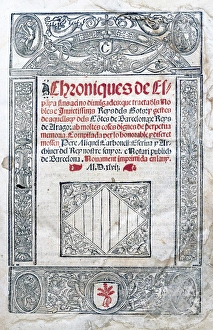 Chroniques de Espa
ya fins aci no divulgades: que tracta dls Nobles
e Invictissims Reys dels Gots: y gestes
de aquells: y dels Cotes de Barcelona: e Reys
de Arago: ab moltes coses dignes de perpetua
memoria. Compilada per lo honorable y discret
mossen Pere Miquel Carbonell: Escriva y Ar
chiver del Rey nostre senyor. e Notari publich
de Barcelona. Novament imprimida en lany.
M.D.xlvij.